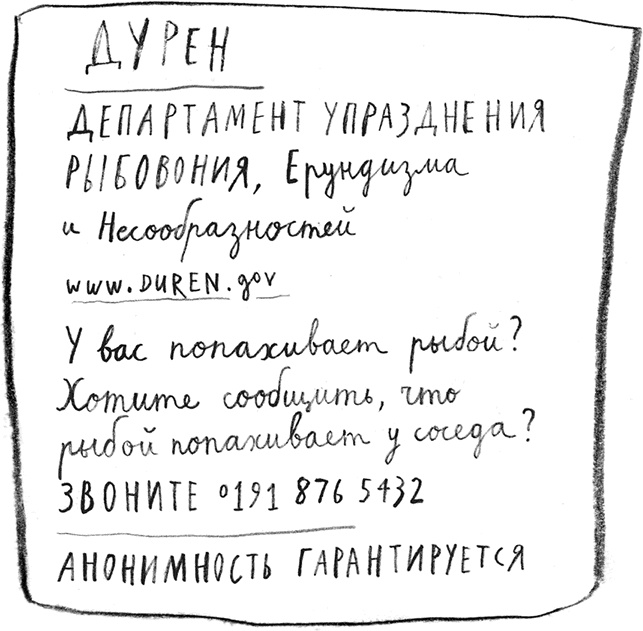 ДУРЕН
ДЕПАРТАМЕНТ УПРАЗДНЕНИЯ
РЫБОВОНИЯ, Ерундизма
и Несообразностей
www.DUREN.gov
У вас попахивает рыбой?
Хотите сообщить, что
рыбой попахивает у соседа?
ЗВОНИТЕ 0191 876 5432
АНОНИМНОСТЬ ГАРАНТИРУЕТСЯ